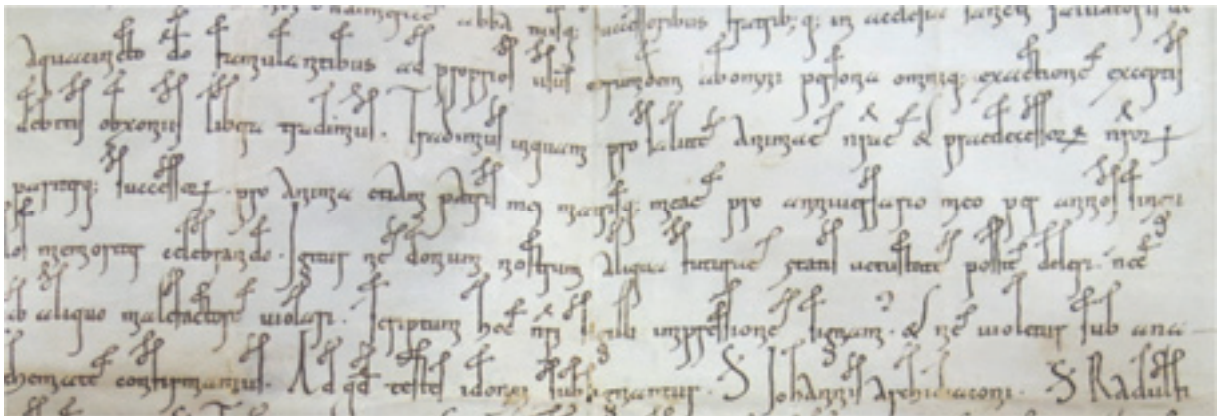 abba success oribus fratrib; q; in aecclesia sancti salvatoris
Aquacincto deo famulantibus ad proprios usus eiusdem ab omni psona omniq; exactione exceptis
debitis obsoniis libera tradimus. Tradimus inquam pro salute Animae nrae & praedecessor nror
pariterq; successor. pro Anima etiam patris mei matrisq; meae pro anniversario meo per annos singu
los memoriter celebrando. Igitur ne donum nostrum Aliqua futurae statis vetustate possit deleri. nec
ab aliquo malefactore violari. Scriptum hoc nri sigilli impressione signam. & ne violetur sub ana
themate confirmamus. Ad qd testes idonei subsignantur. S Johannis archidiaconi. S Radulfi